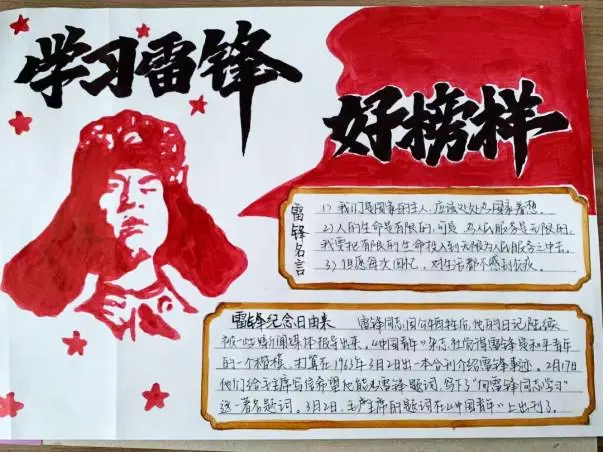 学习雷锋
好榜样
雷锋名言
1) 我们是国家的主人,应该处处为国家着想。
2) 人的生命是有限的,可是,为人民服务是无限的,
我要把有限的生命投入到无限为人民服务之中去。
3) 但愿每次回忆,对生活都不感到负疚。
雷锋纪念日由来
雷锋同志因公牺牲后,他的日记陆续
被一些新闻媒体报导出来。《中国青年》杂志社觉得雷锋是和平青年
的一个楷模,打算在1963年3月2日出一本分刊介绍雷锋事迹。2月17日
他们给主席写信希望他能为雷锋题词,写下了"向雷锋同志学习"
这一著名题词。3月2日,毛主席的题词在《中国青年》上出刊了。